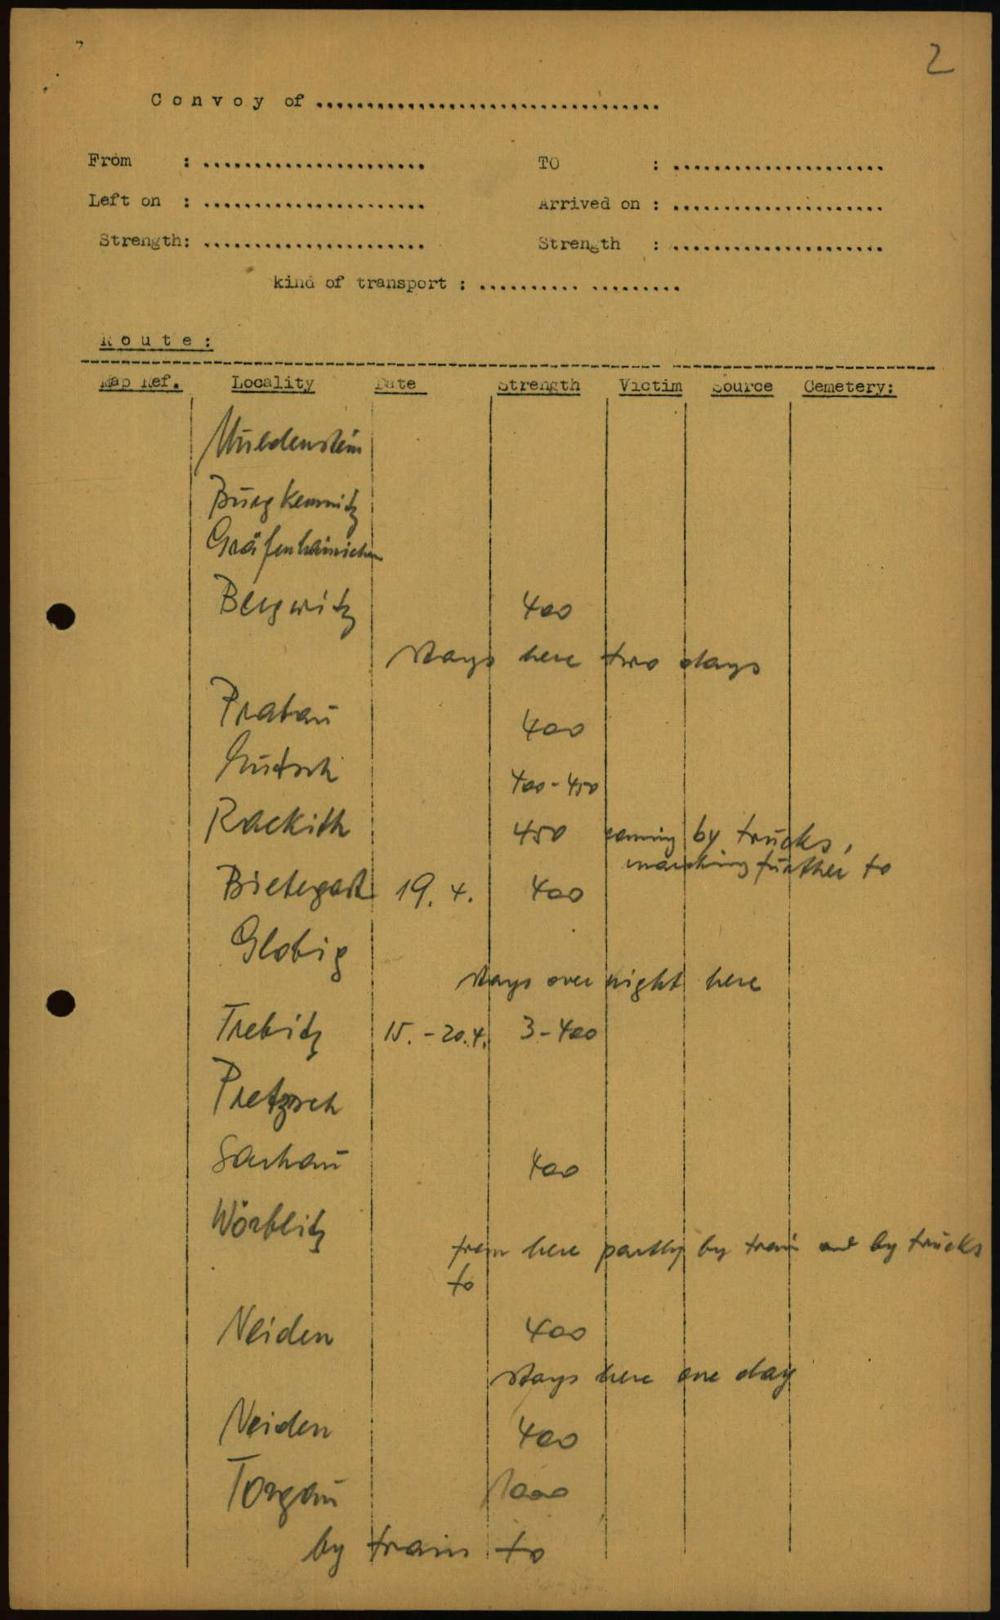 2
Convoy of ..................................
From : ...................... TO : .....................
Left on : ...................... Arrived on : .....................
Strength: ...................... Strength : .....................
kind of transport : .......... .........
Route :
Map Ref. Locality Date Strength Victim Source Cemetery:
Muldenstein
Burgkemnitz
Gräfenhainichen
Bergwitz 400
stays here two days
Pratau 400
400-450
Rackith 450 coming by trucks,
marching further to
19. 4. 400
Globig
stays over night here
Trebitz 15. - 20.4. 3-400
Pretzsch
Sachau 400
Wörblitz
from here partly by train and by trucks
to
Neiden 400
stays here one day
Neiden 400
Torgau 1000
by train to